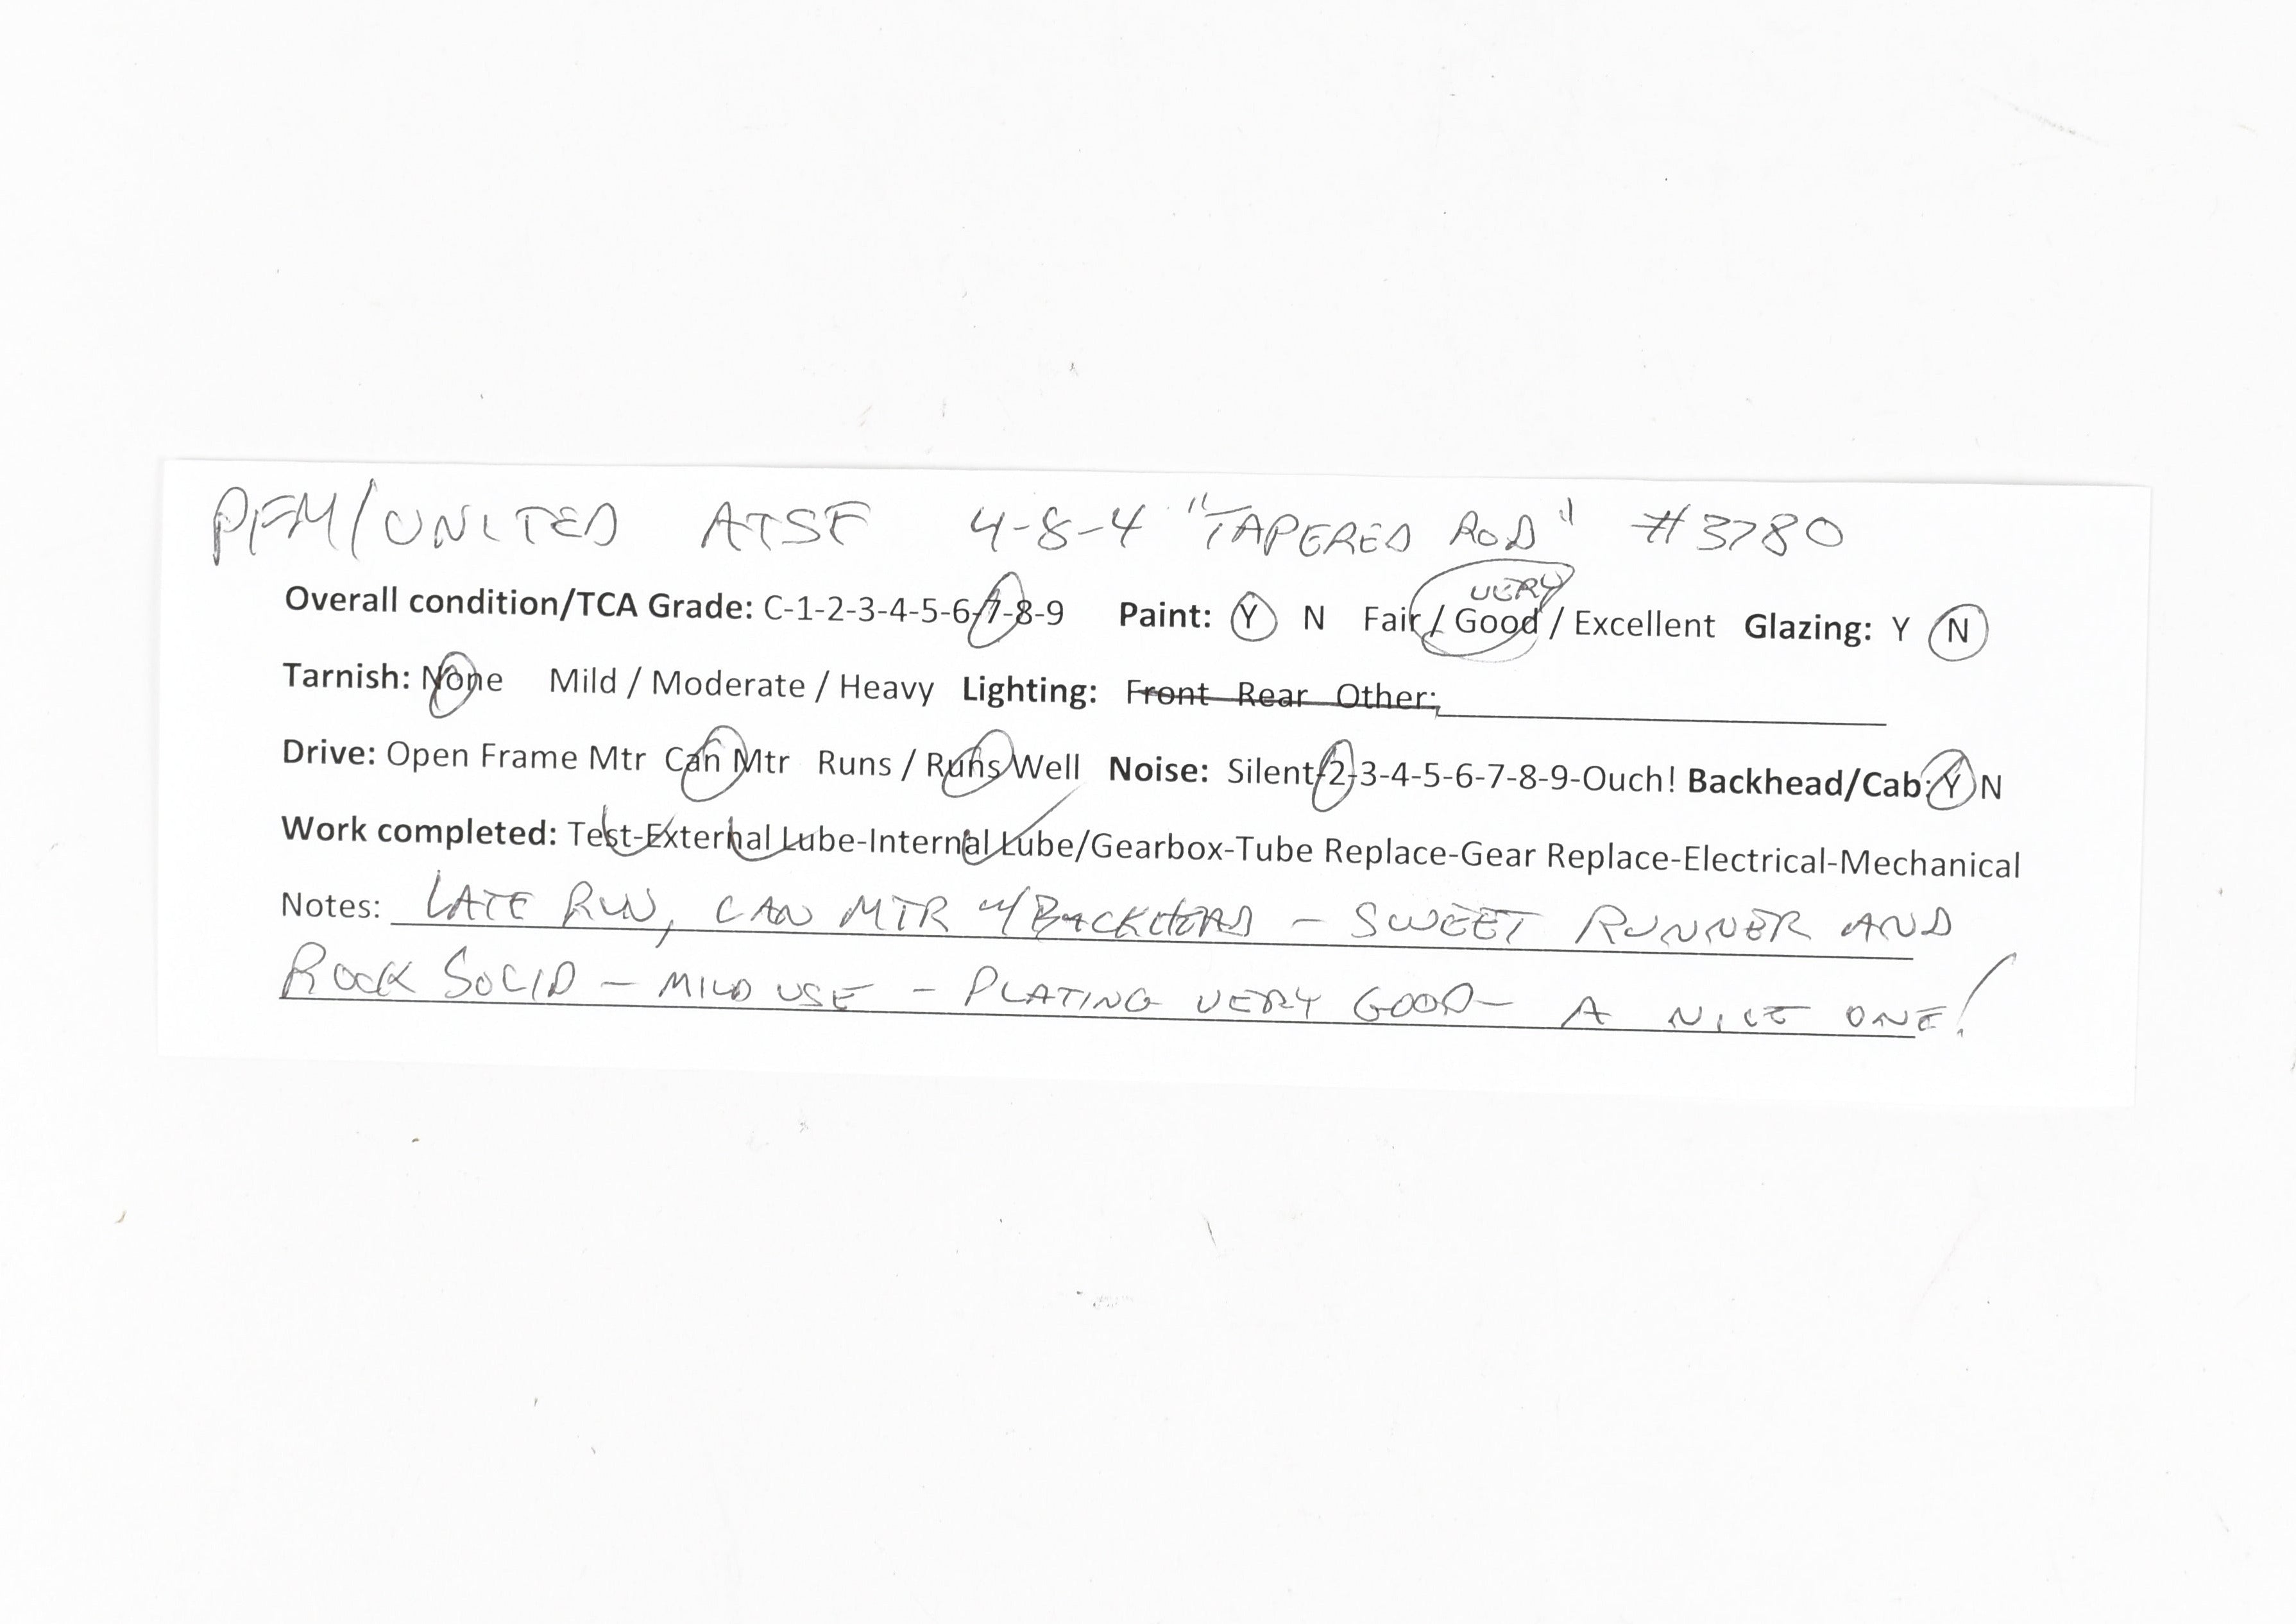 PFM/UNITED ATSF 4-8-4 "TAPERED ROD" #3780
Overall condition/TCA Grade: C-1-2-3-4-5-6-7-8-9 Paint: Y N Fair / VERY Good / Excellent Glazing: Y N
Tarnish: None Mild / Moderate / Heavy Lighting: Front Rear Other:
Drive: Open Frame Mtr Can Mtr Runs / Runs Well Noise: Silent-2-3-4-5-6-7-8-9-Ouch! Backhead/Cab: Y N
Work completed: Test-External Lube-Internal Lube/Gearbox-Tube Replace-Gear Replace-Electrical-Mechanical
Notes: LATE RUN, CAN MTR w/BACKHEAD - SWEET RUNNER AND
ROCK SOLID - MILD USE - PLATING VERY GOOD - A NICE ONE!